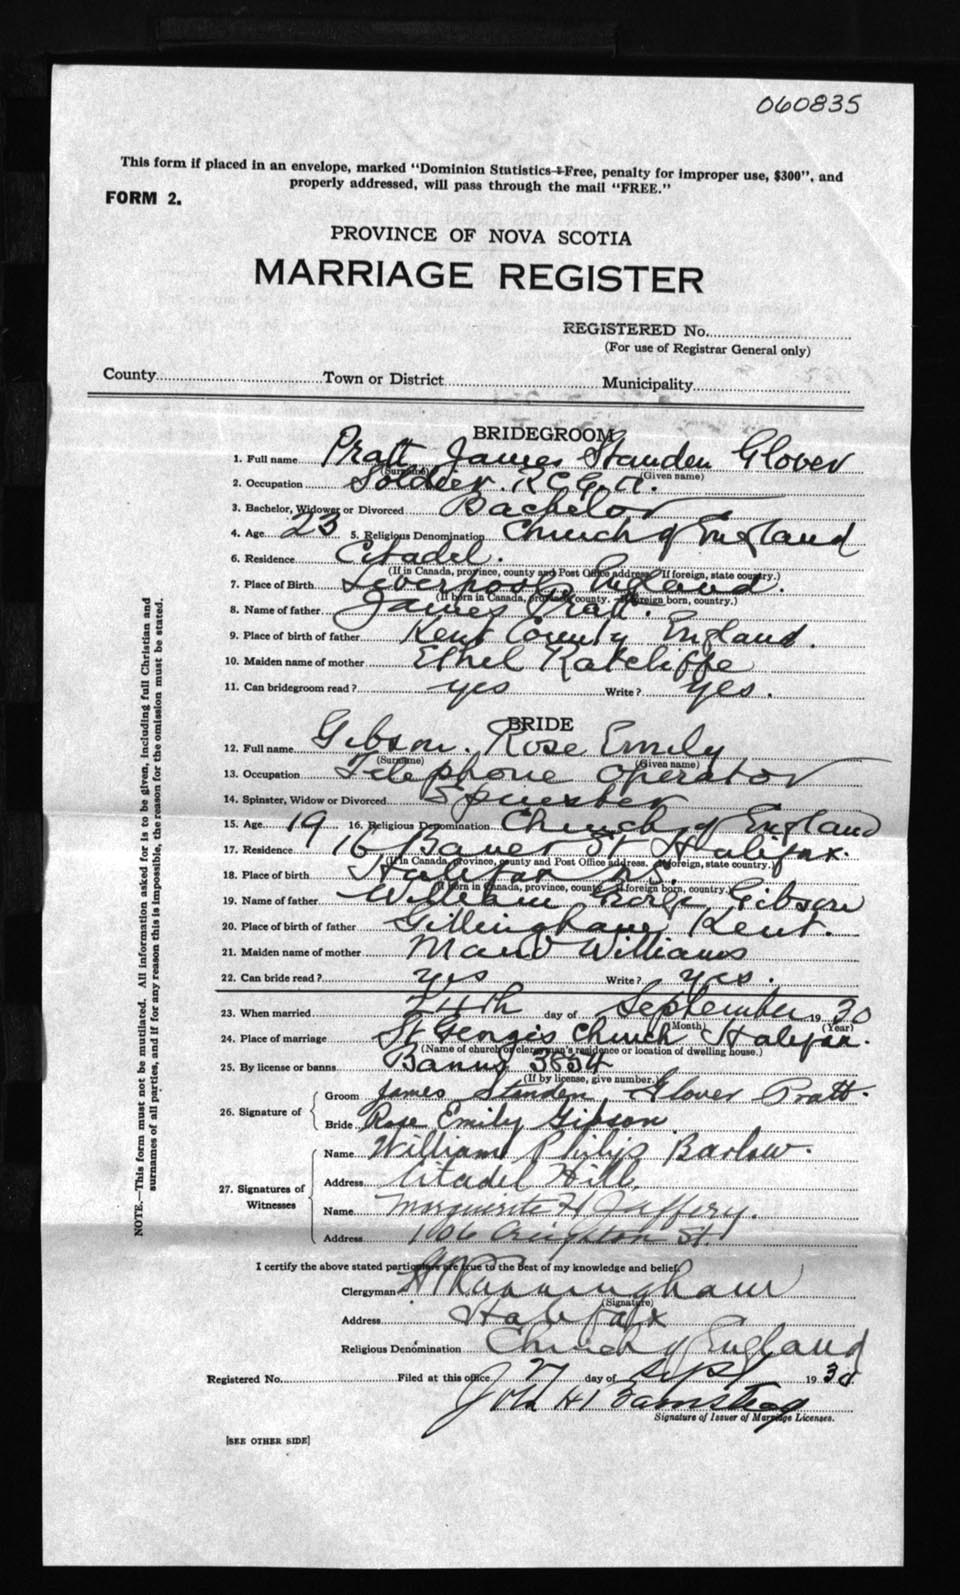 060835
This form if placed in an envelope, marked "Dominion Statistics—Free, penalty for improper use, $300", and
properly addressed, will pass through the mail "FREE."
FORM 2.
PROVINCE OF NOVA SCOTIA
MARRIAGE REGISTER
REGISTERED No.
(For use of Registrar General only)
County Town or District Municipality
BRIDEGROOM
1. Full name Pratt James Standen Glover
(Surname) (Given name)
2. Occupation Soldier. R.C.G.A.
3. Bachelor, Widower or Divorced Bachelor
4. Age 23 5. Religious Denomination Church of England
6. Residence Citadel.
(If in Canada, province, county and Post Office address. If foreign, state country.)
7. Place of Birth Liverpool, England.
(If born in Canada, province, county. If foreign born, country.)
8. Name of father James Pratt.
9. Place of birth of father Kent County England.
10. Maiden name of mother Ethel Ratcliffe
11. Can bridegroom read? yes Write? yes.
BRIDE
12. Full name Gibson. Rose Emily
(Surname) (Given name)
13. Occupation Telephone operator
14. Spinster, Widow or Divorced Spinster
15. Age 19 16. Religious Denomination Church of England
17. Residence 16 Bauer St Halifax.
(If in Canada, province, county and Post Office address. If foreign, state country.)
18. Place of birth Halifax N.S.
(If born in Canada, province, county. If foreign born, country.)
19. Name of father William George Gibson
20. Place of birth of father Gillingham Kent.
21. Maiden name of mother Maud Williams
22. Can bride read? yes Write? yes.
23. When married 24th day of September 1930
(Month) (Year)
24. Place of marriage St George's Church Halifax.
(Name of church or clergyman's residence or location of dwelling house.)
25. By license or banns Banns 3634
(If by license, give number.)
26. Signature of
Groom James Standen Glover Pratt.
Bride Rose Emily Gibson
27. Signatures of Witnesses
Name William Philip Barlow.
Address Citadel Hill,
Name Marguerite H Jaffery.
Address Creighton St.
I certify the above stated particulars are true to the best of my knowledge and belief.
Clergyman Cunningham
(Signature)
Address Halifax
Religious Denomination Church of England
Registered No. Filed at this office 27 day of Sept 1930
John H Barnstead
Signature of Issuer of Marriage Licenses.
[SEE OTHER SIDE]
NOTE.—This form must not be mutilated. All information asked for is to be given, including full Christian and
surnames of all parties, and if for any reason this is impossible, the reason for the omission must be stated.